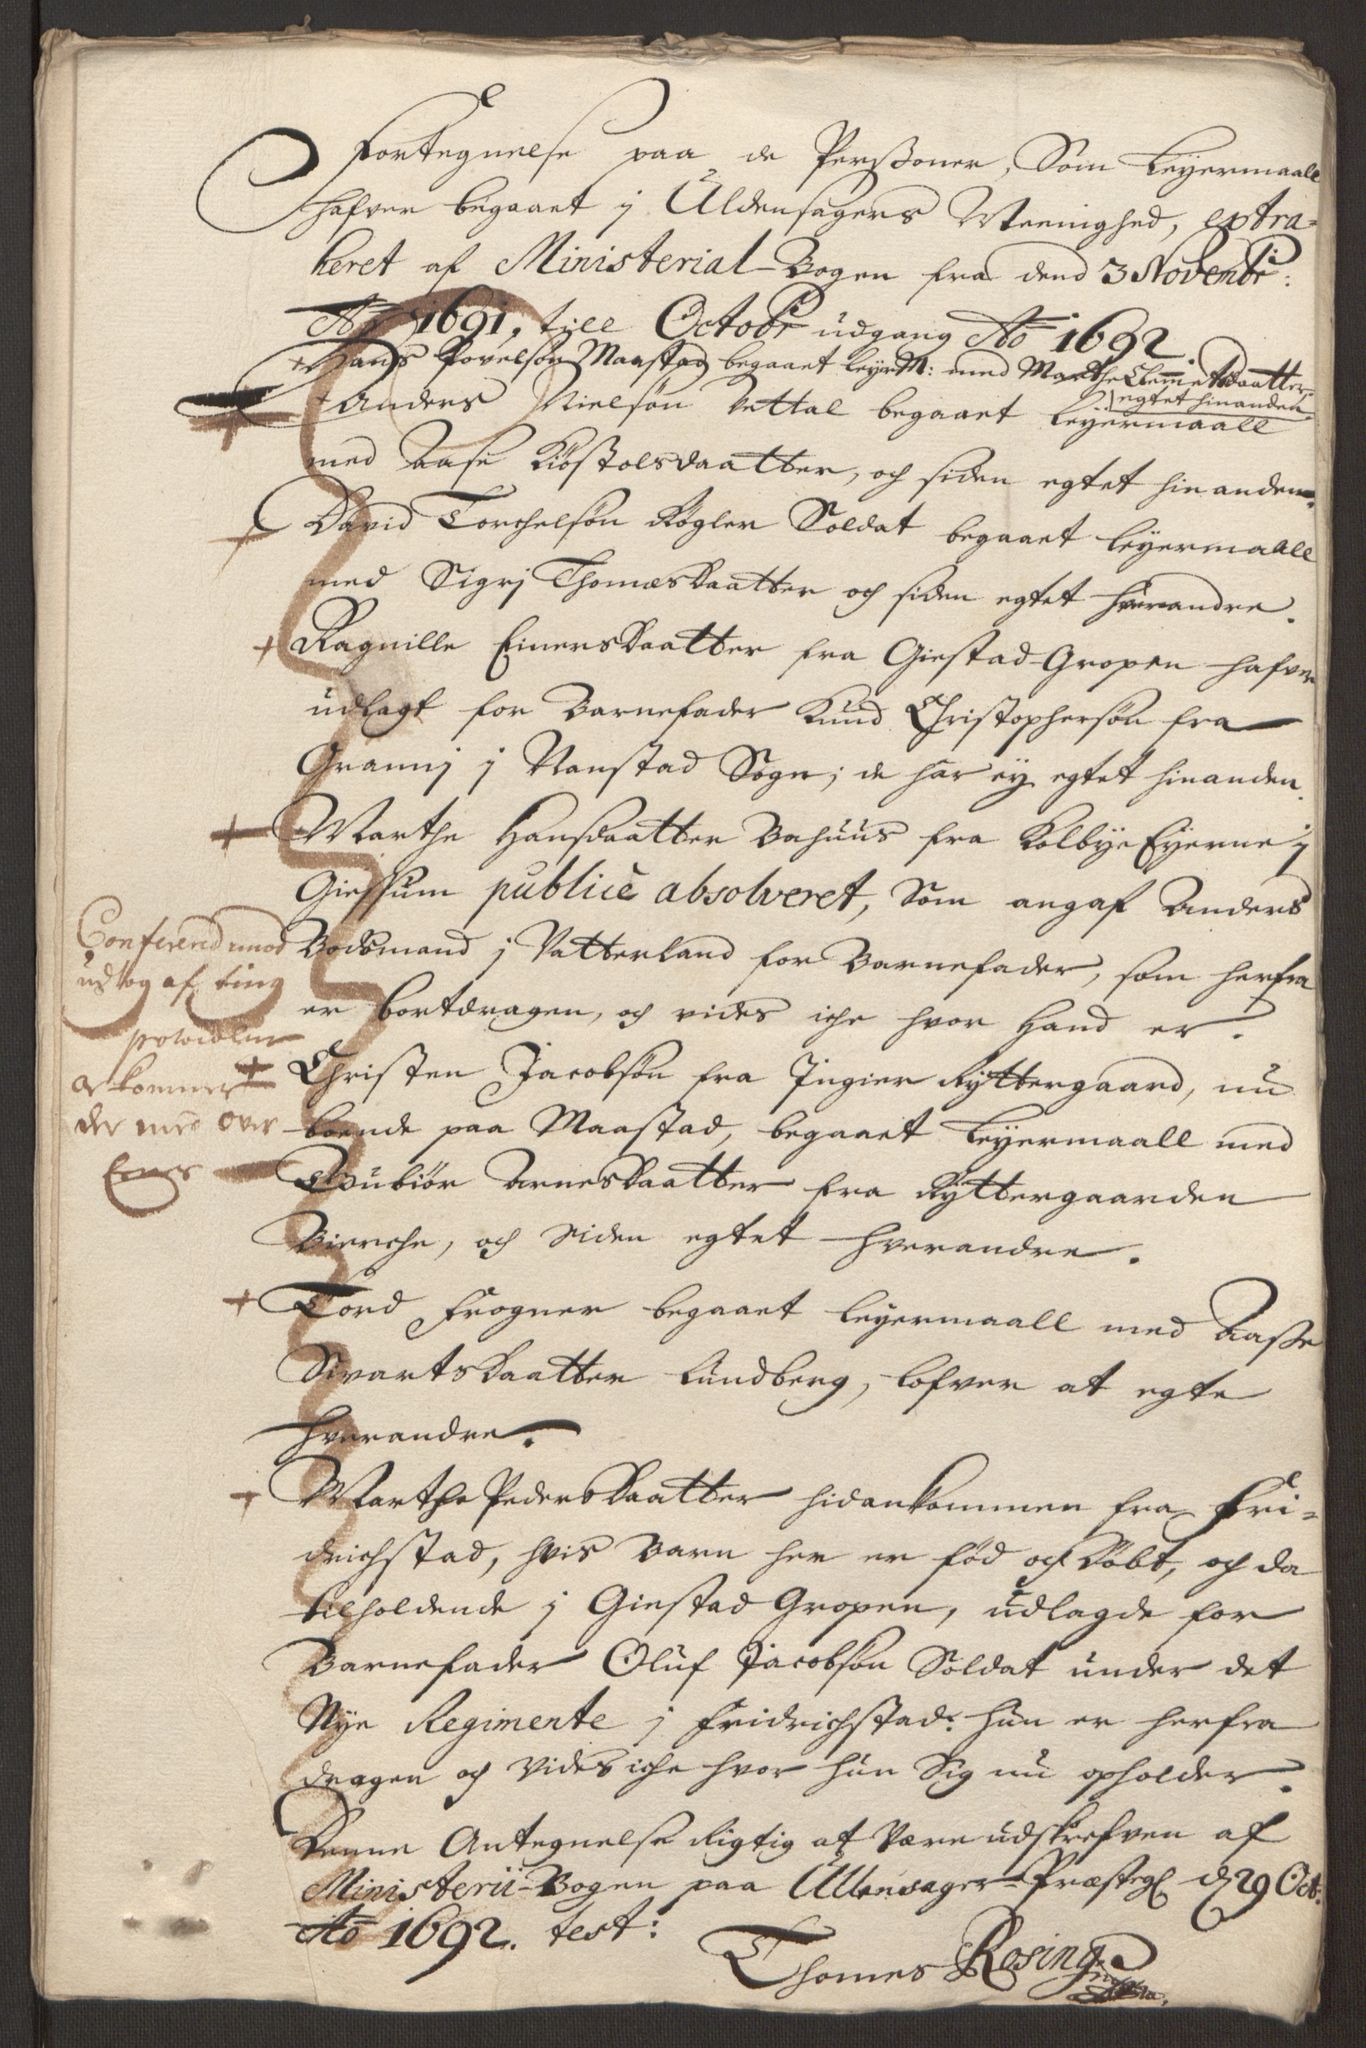 Fortegnelse paa de Perßoner, Som Leyermaall
hafver begaaet j Uldensagers Meenighed, extra-
heret af Ministerial-Bogen fra dend 3 Novembr:
Ao 1691, till Octobr udgang Ao 1692
Hans Povelsøn Maastad begaaet leyrM: med Marthe Clemmetsdaatter,
egtet hinanden
Anders Nielsøn Vettal begaaet Leyermaall
med Aase Kiøstolsdaatter, och siden egtet hinanden.
David Torchelsøn Røgler Soldat begaaet leyermaall
med Sigrj Thomæsdaatter och siden egtet hverandre.
Ragnille Einersdaatter fra Giestad-Gropen hafver
udlagt for Barnefader Knud Christophersøn fra
j Nanstad Sogn; de har ey egtet hinanden.
Marthe Hansdaatter Bahuus fra Kolbye Eyerne j
Giessum publicè absolveret, Som angaf Anders
Bodsmand j Vatterland for Barnefader, som herfra
er bortdragen, och vides iche hvor Hand er.
Christen Jacobsøn fra Jngier Ryttergaard, nu
boende paa Maastad, begaaet Leyermaall med
Gubiør Arnesdaatter fra Ryttergaarden
Bierche, och siden egtet hverandre.
Tord Frogner begaaet leyermaall med Aaße
Sivartsdaatter Lundberg, lofver at egte
hverandre.
Marthe Pedersdaatter hidankommen fra Fri-
drichstad, hvis Barn her er fød och døbt, och da
tilholdende j Giestad Gropen, udlagde for
Barnefader Oluf Jacobsøn Soldat under det
Nye Regimente j Fridrichstad: hun er herfra
dragen och vides iche hvor hun Sig nu opholder.
Denne Antegnelse Rigtig at være udskrefven af
Ministerii-Bogen paa Ullensager-Præstegl d 29 Oct:
Ao 1692. test:
Thomes Rosing
Confererid imod
udtog af ting
protocollen
och kommer
der med over
Eens